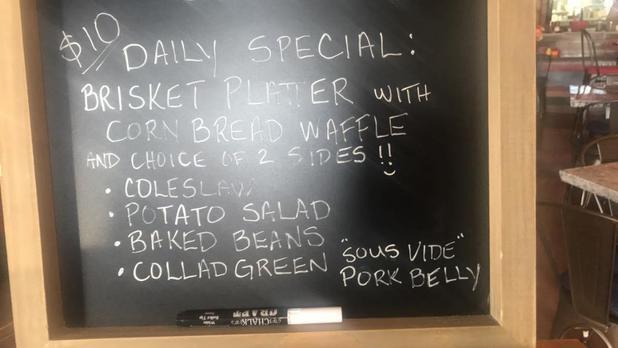 $10
DAILY SPECIAL:
BRISKET PLATTER WITH
CORN BREAD WAFFLE
AND CHOICE OF 2 SIDES !!
• COLESLAW
• POTATO SALAD
• BAKED BEANS
• COLLAD GREEN
"SOUS VIDE"
PORK BELLY
CHALK
CRAFT